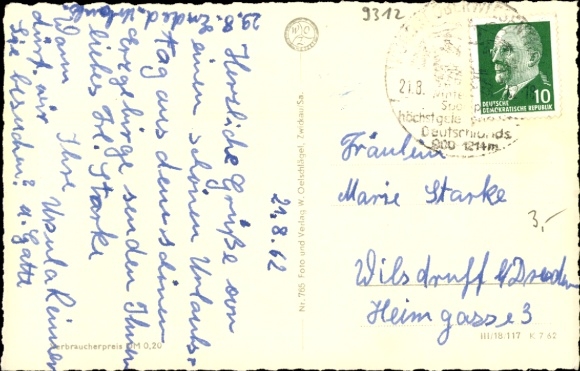 29.8. Ende d. Urlaubs
Herzliche Grüße von
einen schönen Urlaubs-
tag aus dem schönen
Erzgebirge senden Ihnen
liebes Frl. Starke
Ihre Ursula Reimer
u. Gatte
Wann
dürfen wir
Sie besuchen?
21.8.62
Nr. 765 Foto und Verlag W. Oetschlägel, Zwickau/Sa.
Verbraucherpreis DM 0,20
9312
21.8.
höchstgele
Deutschlands
900 1214m
10
DEUTSCHE
DEMOKRATISCHE REPUBLIK
Fräulein
Marie Starke
3,-
Wilsdruff b/Dresden
Heimgasse 3
III/18/117 K 7 62